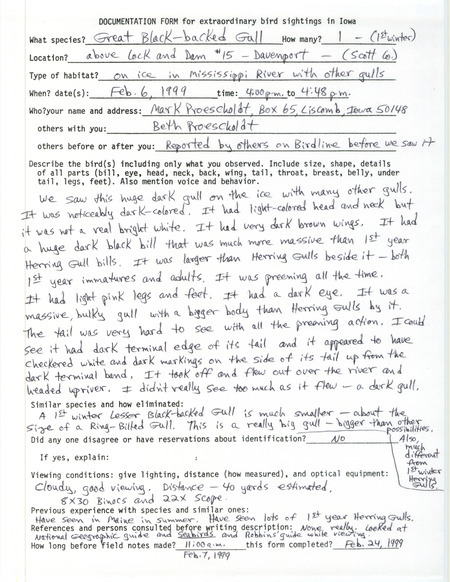 DOCUMENTATION FORM for extraordinary bird sightings in Iowa
What species? Great Black-backed Gull How many? 1 - (1st winter)
Location? above Lock and Dam #15 - Davenport - (Scott Co.)
Type of habitat? on ice in Mississippi River with other gulls
When? date(s): Feb. 6, 1999 time: 4:00 p.m. to 4:48 p.m.
Who? your name and address: Mark Proescholdt, Box 65, Liscomb, Iowa 50148
others with you: Beth Proescholdt
others before or after you: Reported by others on Birdline before we saw it
Describe the bird(s) including only what you observed. Include size, shape, details
of all parts (bill, eye, head, neck, back, wing, tail, throat, breast, belly, under
tail, legs, feet). Also mention voice and behavior.
We saw this huge dark gull on the ice with many other gulls.
It was noticeably dark-colored. It had light-colored head and neck but
it was not a real bright white. It had very dark brown wings. It had
a huge dark black bill that was much more massive than 1st year
Herring Gull bills. It was larger than Herring Gulls beside it - both
1st year immatures and adults. It was preening all the time.
It had light pink legs and feet. It had a dark eye. It was a
massive, bulky gull with a bigger body than Herring Gulls by it.
The tail was very hard to see with all the preening action. I could
see it had dark terminal edge of its tail and it appeared to have
checkered white and dark markings on the side of its tail up from the
dark terminal band. It took off and flew out over the river and
headed upriver. I didn't really see too much as it flew - a dark gull.
Similar species and how eliminated:
A 1st winter Lesser Black-backed Gull is much smaller - about the
size of a Ring-Billed Gull. This is a really big gull - bigger than other
possibilities.
Did any one disagree or have reservations about identification? No
Also,
much
different
from
1st winter
Herring
Gulls.
If yes, explain:
Viewing conditions: give lighting, distance (how measured), and optical equipment:
Cloudy, good viewing. Distance - 40 yards estimated.
8X30 Binocs and 22X Scope.
Previous experience with species and similar ones:
Have seen in Maine in summer. Have seen lots of 1st year Herring Gulls.
References and persons consulted before writing description: None, really. Looked at
National Geographic guide and Seabirds and Robbins' guide while viewing.
How long before field notes made? 11:00 a.m. this form completed? Feb. 24, 1999
Feb. 7, 1999